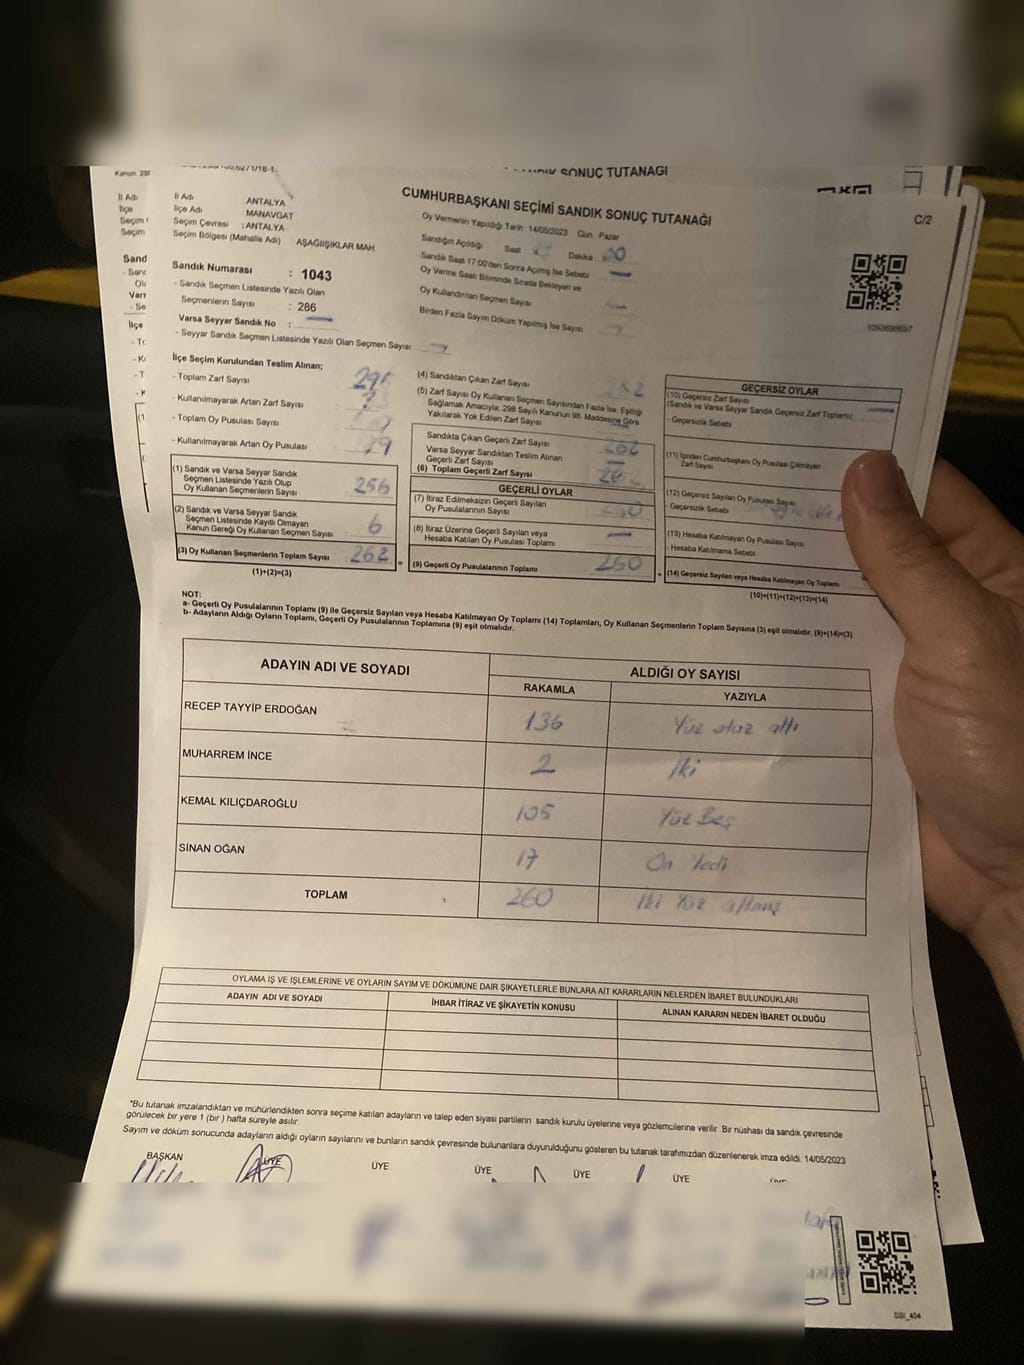 SONUÇ TUTANAĞI
Kanun. 298
C/2
CUMHURBAŞKANI SEÇİMİ SANDIK SONUÇ TUTANAĞI
İl Adı
İl Adı ANTALYA
İlçe
İlçe Adı MANAVGAT
Seçim
Seçim Çevresi : ANTALYA
Seçim
Seçim Bölgesi (Mahalle Adı) AŞAĞIIŞIKLAR MAH.
Oy Vermenin Yapıldığı Tarih : 14/05/2023 Gün : Pazar
Sandığın Açıldığı Saat Dakika : 00
Sandık Saat 17:00'den Sonra Açılmış İse Sebebi
Oy Verme Saati Bitiminde Sırada Bekleyen ve
Oy Kullandırılan Seçmen Sayısı
Birden Fazla Sayım Döküm Yapılmış İse Sayısı
1093698697
Sandık Numarası : 1043
- Sandık Seçmen Listesinde Yazılı Olan
Seçmenlerin Sayısı : 286
Varsa Seyyar Sandık No :
- Seyyar Sandık Seçmen Listesinde Yazılı Olan Seçmen Sayısı:
İlçe Seçim Kurulundan Teslim Alınan;
- Toplam Zarf Sayısı
- Kullanılmayarak Artan Zarf Sayısı
- Toplam Oy Pusulası Sayısı
- Kullanılmayarak Artan Oy Pusulası 29
(1) Sandık ve Varsa Seyyar Sandık
Seçmen Listesinde Yazılı Olup
Oy Kullanan Seçmenlerin Sayısı 256
(2) Sandık ve Varsa Seyyar Sandık
Seçmen Listesinde Kayıtlı Olmayan
Kanun Gereği Oy Kullanan Seçmen Sayısı 6
(3) Oy Kullanan Seçmenlerin Toplam Sayısı 262
(1)+(2)=(3)
(4) Sandıktan Çıkan Zarf Sayısı 262
(5) Zarf Sayısı Oy Kullanan Seçmen Sayısından Fazla İse, Eşitliği
Sağlamak Amacıyla; 298 Sayılı Kanunun 98. Maddesine Göre
Yakılarak Yok Edilen Zarf Sayısı
Sandıkta Çıkan Geçerli Zarf Sayısı 262
Varsa Seyyar Sandıktan Teslim Alınan
Geçerli Zarf Sayısı
(6) Toplam Geçerli Zarf Sayısı 262
GEÇERLİ OYLAR
(7) İtiraz Edilmeksizin Geçerli Sayılan
Oy Pusulalarının Sayısı 260
(8) İtiraz Üzerine Geçerli Sayılan veya
Hesaba Katılan Oy Pusulası Toplamı
(9) Geçerli Oy Pusulalarının Toplamı 260
GEÇERSİZ OYLAR
(10) Geçersiz Zarf Sayısı
(Sandık ve Varsa Seyyar Sandık Geçersiz Zarf Toplamı)
- Geçersizlik Sebebi
(11) İçinden Cumhurbaşkanı Oy Pusulası Çıkmayan
Zarf Sayısı
(12) Geçersiz Sayılan Oy Pusulası Sayısı
- Geçersizlik Sebebi
(13) Hesaba Katılmayan Oy Pusulası Sayısı
- Hesaba Katılmama Sebebi
(14) Geçersiz Sayılan veya Hesaba Katılmayan Oy Toplamı
(10)+(11)+(12)+(13)=(14)
NOT:
a- Geçerli Oy Pusulalarının Toplamı (9) ile Geçersiz Sayılan veya Hesaba Katılmayan Oy Toplamı (14) Toplamları, Oy Kullanan Seçmenlerin Toplam Sayısına (3) eşit olmalıdır. (9)+(14)=(3)
b- Adayların Aldığı Oyların Toplamı, Geçerli Oy Pusulalarının Toplamına (9) eşit olmalıdır.
ADAYIN ADI VE SOYADI ALDIĞI OY SAYISI
RAKAMLA YAZIYLA
RECEP TAYYİP ERDOĞAN 136 Yüz otuz altı
MUHARREM İNCE 2 İki
KEMAL KILIÇDAROĞLU 105 Yüz Beş
SİNAN OĞAN 17 On Yedi
TOPLAM 260 İki Yüz altmış
OYLAMA İŞ VE İŞLEMLERİNE VE OYLARIN SAYIM VE DÖKÜMÜNE DAİR ŞİKAYETLERLE BUNLARA AİT KARARLARIN NELERDEN İBARET BULUNDUKLARI
ADAYIN ADI VE SOYADI İHBAR İTİRAZ VE ŞİKAYETİN KONUSU ALINAN KARARIN NEDEN İBARET OLDUĞU
"Bu tutanak imzalandıktan ve mühürlendikten sonra seçime katılan adayların ve talep eden siyasi partilerin sandık kurulu üyelerine veya gözlemcilerine verilir. Bir nüshası da sandık çevresinde
görülecek bir yere 1 (bir ) hafta süreyle asılır.
Sayım ve döküm sonucunda adayların aldığı oyların sayılarını ve bunların sandık çevresinde bulunanlara duyurulduğunu gösteren bu tutanak tarafımızdan düzenlenerek imza edildi. 14/05/2023
BAŞKAN ÜYE ÜYE ÜYE ÜYE ÜYE
SSI_404